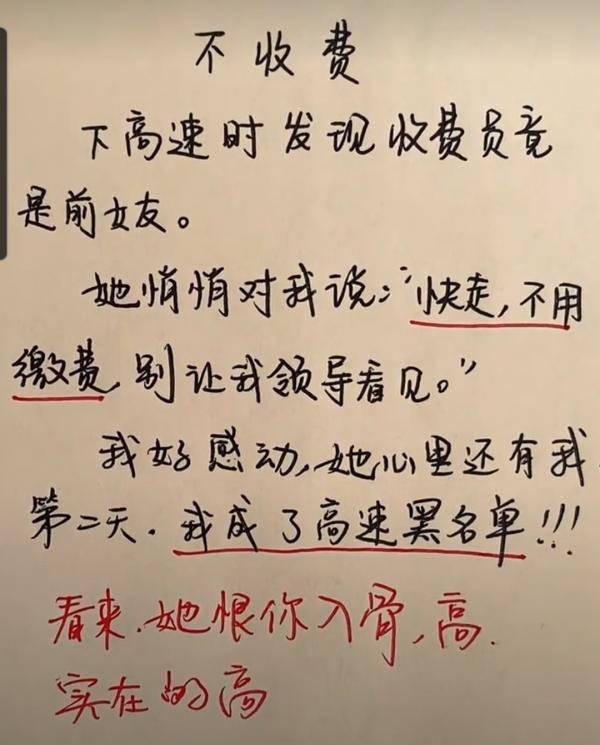 不收费
下高速时发现收费员竟
是前女友。
她悄悄对我说:“快走,不用
缴费,别让我领导看见。”
我好感动,她心里还有我
第二天.我成了高速黑名单!!!
看来.她恨你入骨,高.
实在的高